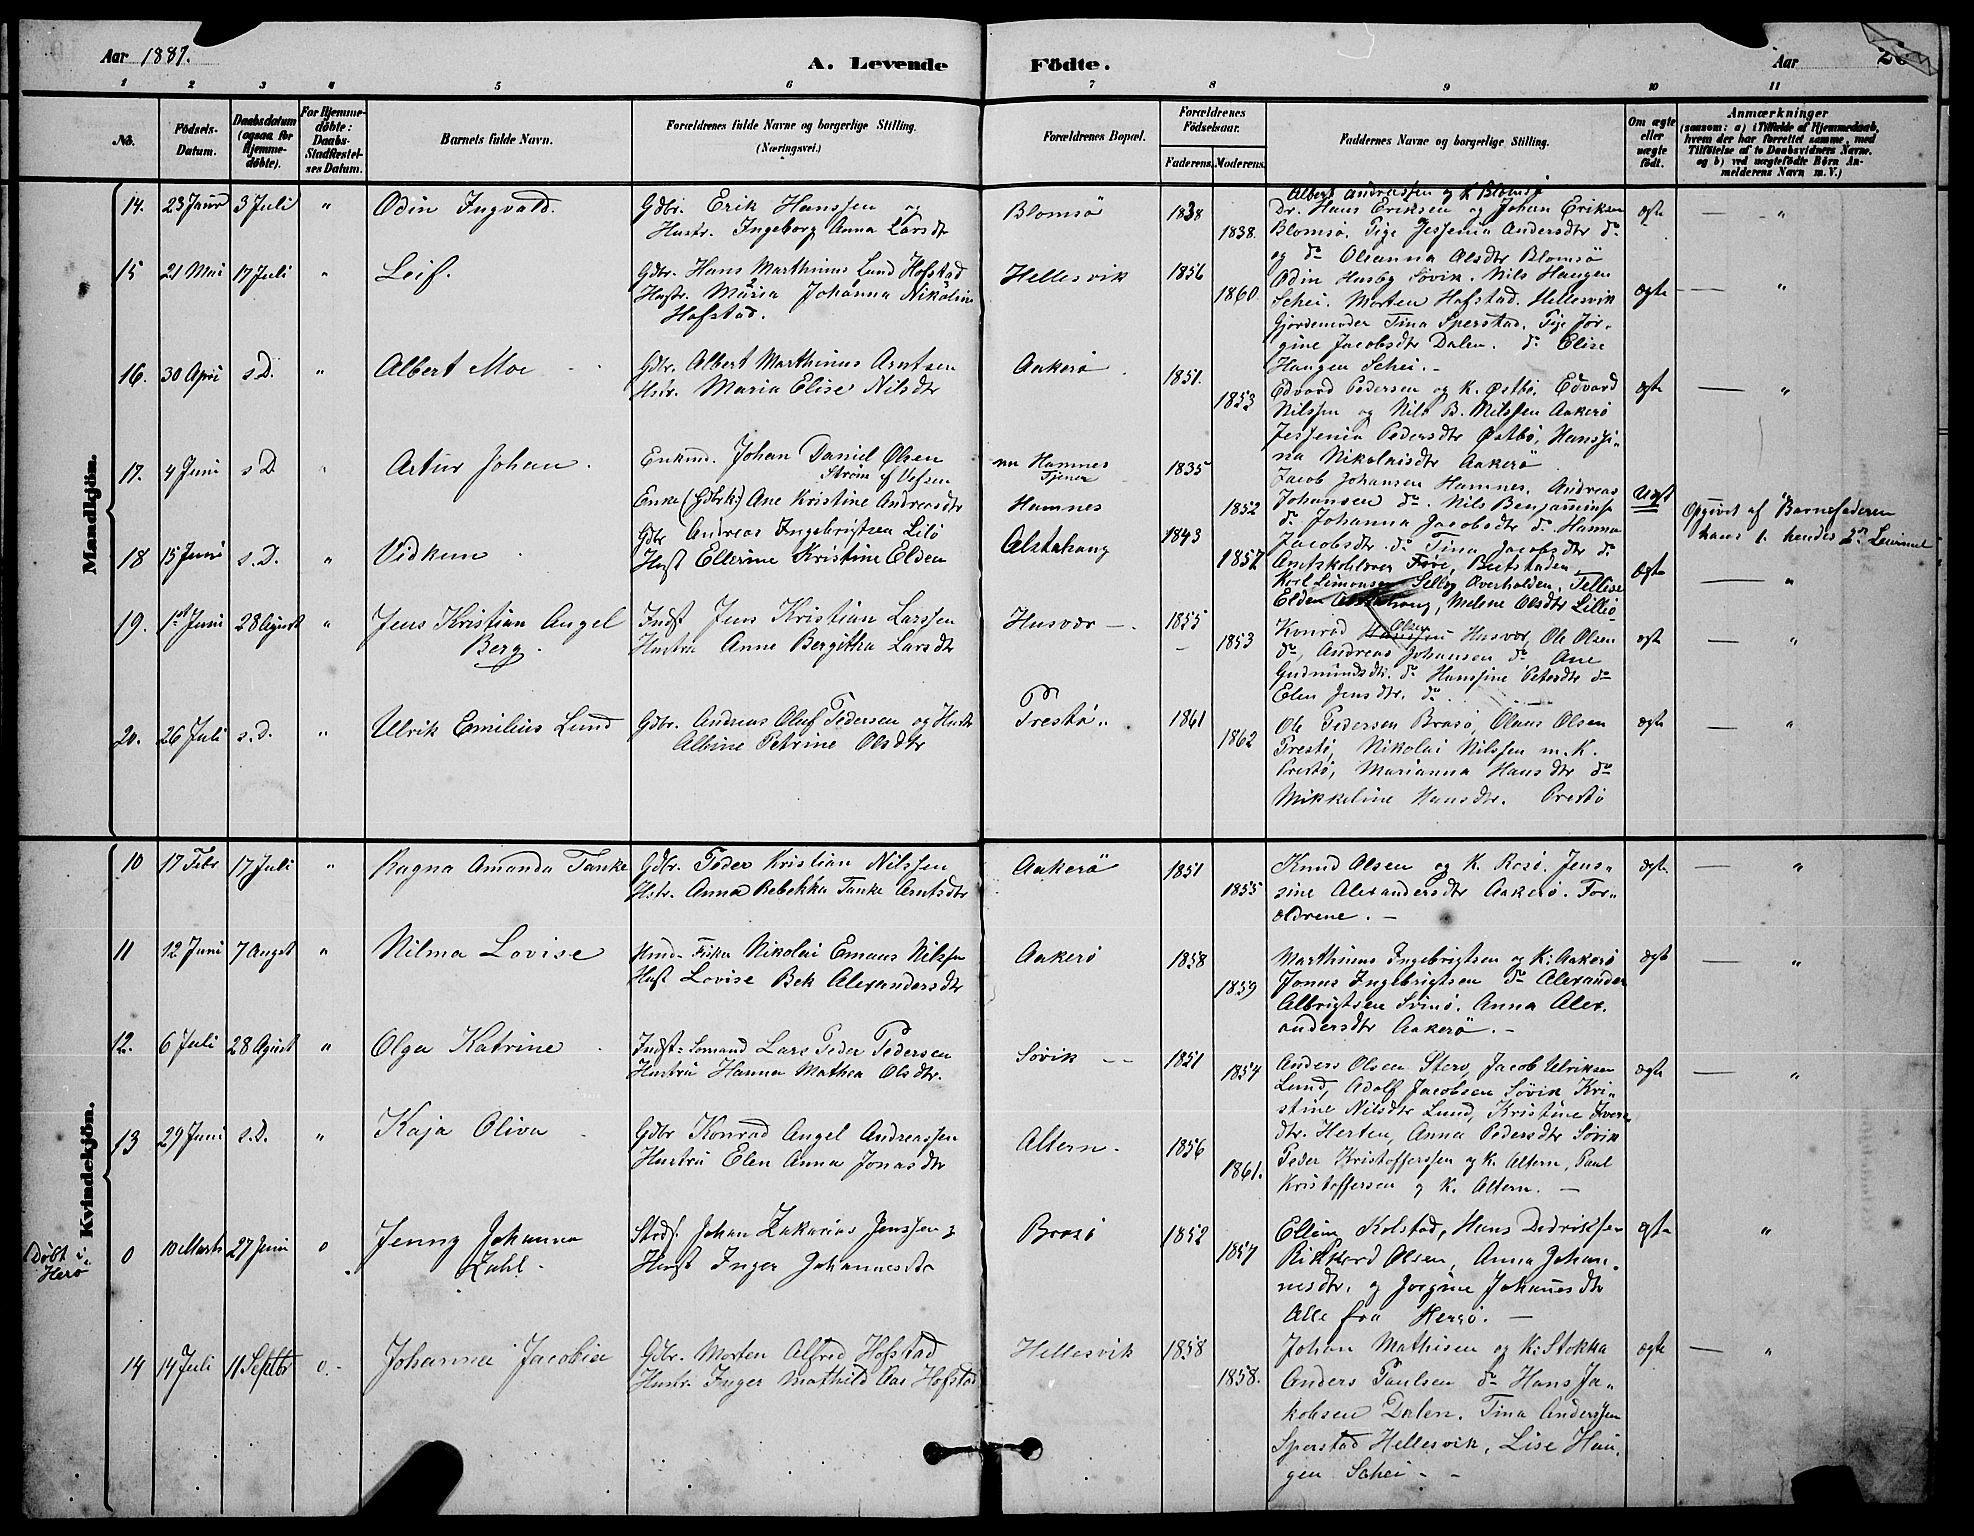 Aar 1887.
A. Levende Födte.
Aar
1 2 3 4 5 6 7 8 9 10 11
No.
Födsels-Datum.
Daabsdatum (ogsaa for Hjemme-döbte).
For Hjemme-döbte: Daabs-Stadfæstel-ses Datum.
Barnets fulde Navn.
Forældrenes fulde Navne og borgerlige Stilling. (Næringsvei.)
Forældrenes Bopæl.
Forældrenes Födselsaar.
Faderens. Moderens.
Faddernes Navne og borgerlige Stilling.
Om ægte eller uægte födt.
Anmærkninger
(saasom: a) i Tilfælde af Hjemmedaab, hvem der har forrettet samme, med Tilföielse af to Daabsvidners Navne. og b) ved uægtefödte Börn An-melderens Navn m. V.)
Mandkjön.
14. 23 Janr 3 Juli " Odin Ingvald. Gdbr. Erik Hanssen og
Hustr. Ingeborg Anna Larsdtr
Blomsö 1838 1838.
Albert Andreassen og K. Blomsö
Dr. Hans Eriksen og Johan Eriksen
Blomsö. Pige Jessenia Andersdtr do
og do Oleanna Olsdtr Blomsö
ægte — "
15 21 Mai 17 Juli " Leif. Gdbr. Hans Marthinus Lund Hofstad
Hustr. Maria Johanna Nikoline
Hofstad.
Hellesvik 1856 1860.
Odin Husby Søvik. Nils Haugen
Schei. Morten Hofstad. Hellesvik
Gjordemoder Tina Sperstad. Pige Jör-
gine Jacobsdtr Dalen. do Elise
Haugen Schei. -
ægte — "
16. 30 April s.D. " Albert Moe Gdbr. Albert Marthinus Arntsen
Hstr. Maria Elise Nilsdtr
Aakerö 1851. 1853
Edvard Pedersen og K. Østbö. Edvard
Nilssen og Nils B. Nilssen Aakerö
Jessenia Pedersdtr Østbö, Hanssi-
na Nikolaisdtr Aakerö
ægte — "
17. 4 Juni s.D. " Artur Johan. Enkmd. Johan Daniel Olsen
Ström af Vefsen
Enke (Gdbrk:) Ane Kristine Andreasdtr
nu Hamnes
Tjener
Hamnes
1835 1852
Jacob Johansen Hamnes, Andreas
Johansen do. Nils Benjaminss
do Johanna Jacobsdtr do Hanna
Jacobsdtr do Tina Jacobsdtr do
Uægt
Opgivet af Barnefaderen
hans 1. hendes 2den Leiermaal
18 15 Juni s.D. " Vidkun Gdbr Andreas Ingebrigtsen Lilö
Hust Ellerine Kristine Elden
Alstahaug 1843 1857
Amtskolelærer Five, Beitstaden
Karl Simonsen Selbog Overhalden, Tellese
Elden Alstahaug, Melene Olsdtr Lillö
ægte — "
19. 1st Juni 28 August " Jens Kristian Angel
Berg.
Indst Jens Kristian Larssen
Hustru Anne Bergitha Larsdtr
Husvær 1855 1853
Konrad Hanssen Olsen Husvær, Ole Olsen
do, Andreas Johansen do Ane
Gudmundsdtr. do Hanssine Petersdtr do
Elen Jensdtr. do
ægt — "
20. 26 Juli s.d. " Ulrik Emilius Lund Gdbr. Andreas Oluf Pedersen og Hustr
Albine Petrine Olsdtr
Prestö 1861 1862
Ole Pedersen Brasö, Olaus Olsen
Prestö, Nikolai Nilssen m. K.
Prestö, Marianna Hansdtr do
Mikkeline Hansdtr. Prestö
ægte — "
Kvindekjön.
10 17 Febr 17 Juli " Ragna Amanda Tanke Gdbr. Peder Kristian Nilssen
Hstr. Anna Rebekka Tanke Arntsdtr
Aakerö 1851 1855
Knud Olsen og K. Rosö. Jens-
sine Alexandersdtr Aakerö. For-
ældrene. -
ægte — "
11 12 Juni 7 Augst " Nilma Lovise Fisker Nikolai Emaus Nilssen
Hust Lovise Bek Alexandersdtr
Aakerö 1858 1859
Marthinus Ingebrigtsen og K. Aakerö
Jonas Ingebrigtsen do Alexander
Albrigtsen Svinö. Anna Alex-
andersdtr Aakerö. -
ægt — "
12. 6 Juli 28 Agust " Olga Katrine Indst: Sømand Lars Peder Pedersen
Hustru Hanna Mathea Olsdtr.
Søvik 1851 1854
Anders Olsen Sterø, Jacob Ulriksen
Lund, Adolf Jacobsen Søvik Kri-
stine Nilsdtr Lund, Kristine Iver-
dtr. Herten, Anna Pedersdtr Søvik
ægte — "
13 29 Juni s.D. " Kaja Oliva Gdbr Konrad Angel Andreassen
Hustru Elen Anna Jonasdtr
Altern. 1856 1861.
Peder Kristofferssen og K. Altern, Paul
Kristoffersen og K. Altern. -
Döbt i
Herö
0 10 Marts 27 Juni 0 Jenny Johanna
Zahl.
Johan Zakarias Jenssen
Hust Inger Johannesdtr
Brasö 1852 1857
Kolstad, Hans Didriksen
Rikkard Olsen, Anna Johan-
nesdtr. og Jorgine Johannesdtr
Alle fra Herö. -
ægte "
14 14 Juli 11 Septbr 0 Johanna Jacobia Gdbr. Morten Alfred Hofstad
Hustr. Inger Mathild Aas Hofstad
Hellesvik 1858 1858.
Johan Mathisen og K. Stokka
Anders Paulsen do Hans Ja-
kobsen Dalen. Tina Anderssen
Sperstad Hellesvik, Lise Hau-
gen Schei - -
ægte — "